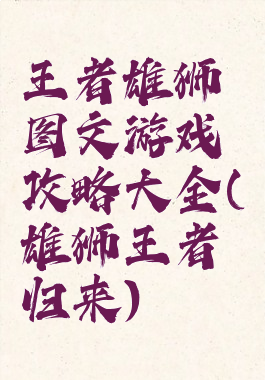 王者雄狮
图文游戏
攻略大全(
雄狮王者
归来)